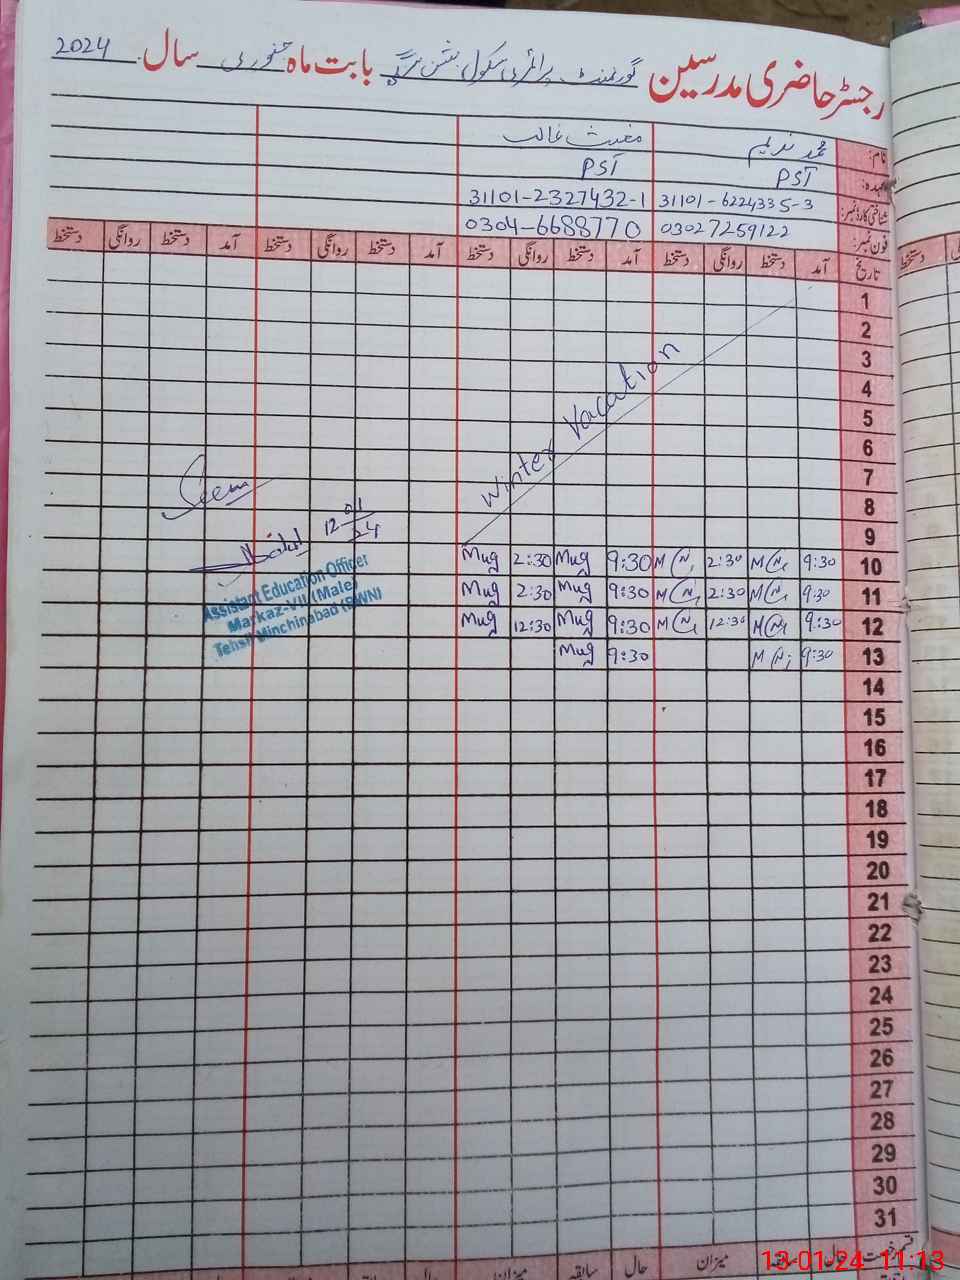 رجسٹر حاضری مدرسین گورنمنٹ پرائمری سکول بابت ماہ جنوری سال 2024
نام: محمد ندیم مغیث غالب
عہدہ: PST PST
شناختی کارڈ نمبر: 31101-6224335-3 31101-2327432-1
فون نمبر: 03027259122 0304-6688770
تاریخ آمد دستخط روانگی دستخط آمد دستخط روانگی دستخط آمد دستخط روانگی دستخط آمد دستخط روانگی دستخط
1
2
3
4
5
6
7
8
9
Winter Vacation
10 9:30 M N 2:30 M N 9:30 Mug 2:30 Mug
11 9:30 M N 2:30 M N 9:30 Mug 2:30 Mug
12 9:30 M N 12:30 M N 9:30 Mug 12:30 Mug
13 9:30 M N 9:30 Mug
Seen
12 01/24
Assistant Education Officer
Markaz-VII (Male)
Tehsil Minchinabad (BWN)
14
15
16
17
18
19
20
21
22
23
24
25
26
27
28
29
30
31
حال میزان سابقہ حال میزان
13-01-24 11:13